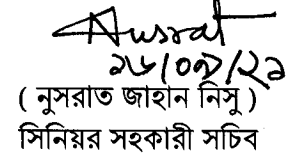 Nusrat
২৬/০৯/২১
( নুসরাত জাহান নিসু )
সিনিয়র সহকারী সচিব